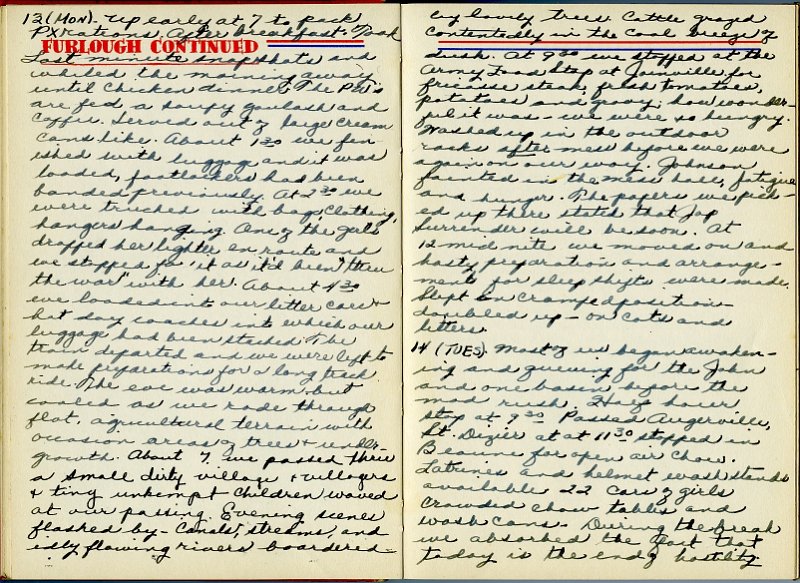 13 (MON). Up early at 7 to pack
PX rations. After breakfast. Took
FURLOUGH CONTINUED
Last minute snapshots and
whiled the morning away
until chicken dinner. The PW's
are fed a soupy goulash and
coffee. Served out of large cream
cans like. About 1:30 we fin-
ished with luggage and it was
loaded, footlockers had been
banded previously. At 2:30 we
were trucked with bags, clothing,
hangers hanging. One of the girls
dropped her lighter en route and
we stopped for it as it'd been "thru
the war" with her. About 4:30
we loaded into our litter cars &
hot day coaches into which our
luggage had been stacked. The
train departed and we were left to
make preparations for a long track
ride. The eve was warm but
cooled as we rode through
flat, agricultural terrain with
occasion areas of trees & under-
growth. About 7 we passed thru
a small dirty village & villagers
& tiny unkempt children waved
at our passing. Evening scenes
flashed by - canals, streams, and
idly flowing rivers boardered -
by lovely trees. Cattle grazed
contentedly in the cool breeze of
dusk. At 9:30 we stopped at the
Army Food Stop at Joinville for
fricasse steak, fresh tomatoes,
potatoes and gravy; how wonder-
ful it was - we were so hungry.
Washed up in the outdoor
racks after mess before we were
again on our way. Johnson
fainted in the mess hall, fatigue
and hunger. The papers we pick-
ed up there stated that Jap
surrender will be soon. At
12 mid nite we moved on and
hasty preparation and arrange-
ments for sleep shifts were made.
Slept in cramped position -
doubled up - on cots and
litters.
14 (TUES). Most of us began awaken-
ing and queuing for the John
and one basin before the
mad rush. Half hour
stop at 9:30 Passed Augerville,
St. Dizier at at 11:30 stopped in
Beaune for open air chow.
Latrines and helmet wash stands
available 22 cars of girls
crowded chow tables and
wash cans. During the break
we absorbed the fact that
today is the end of hostility